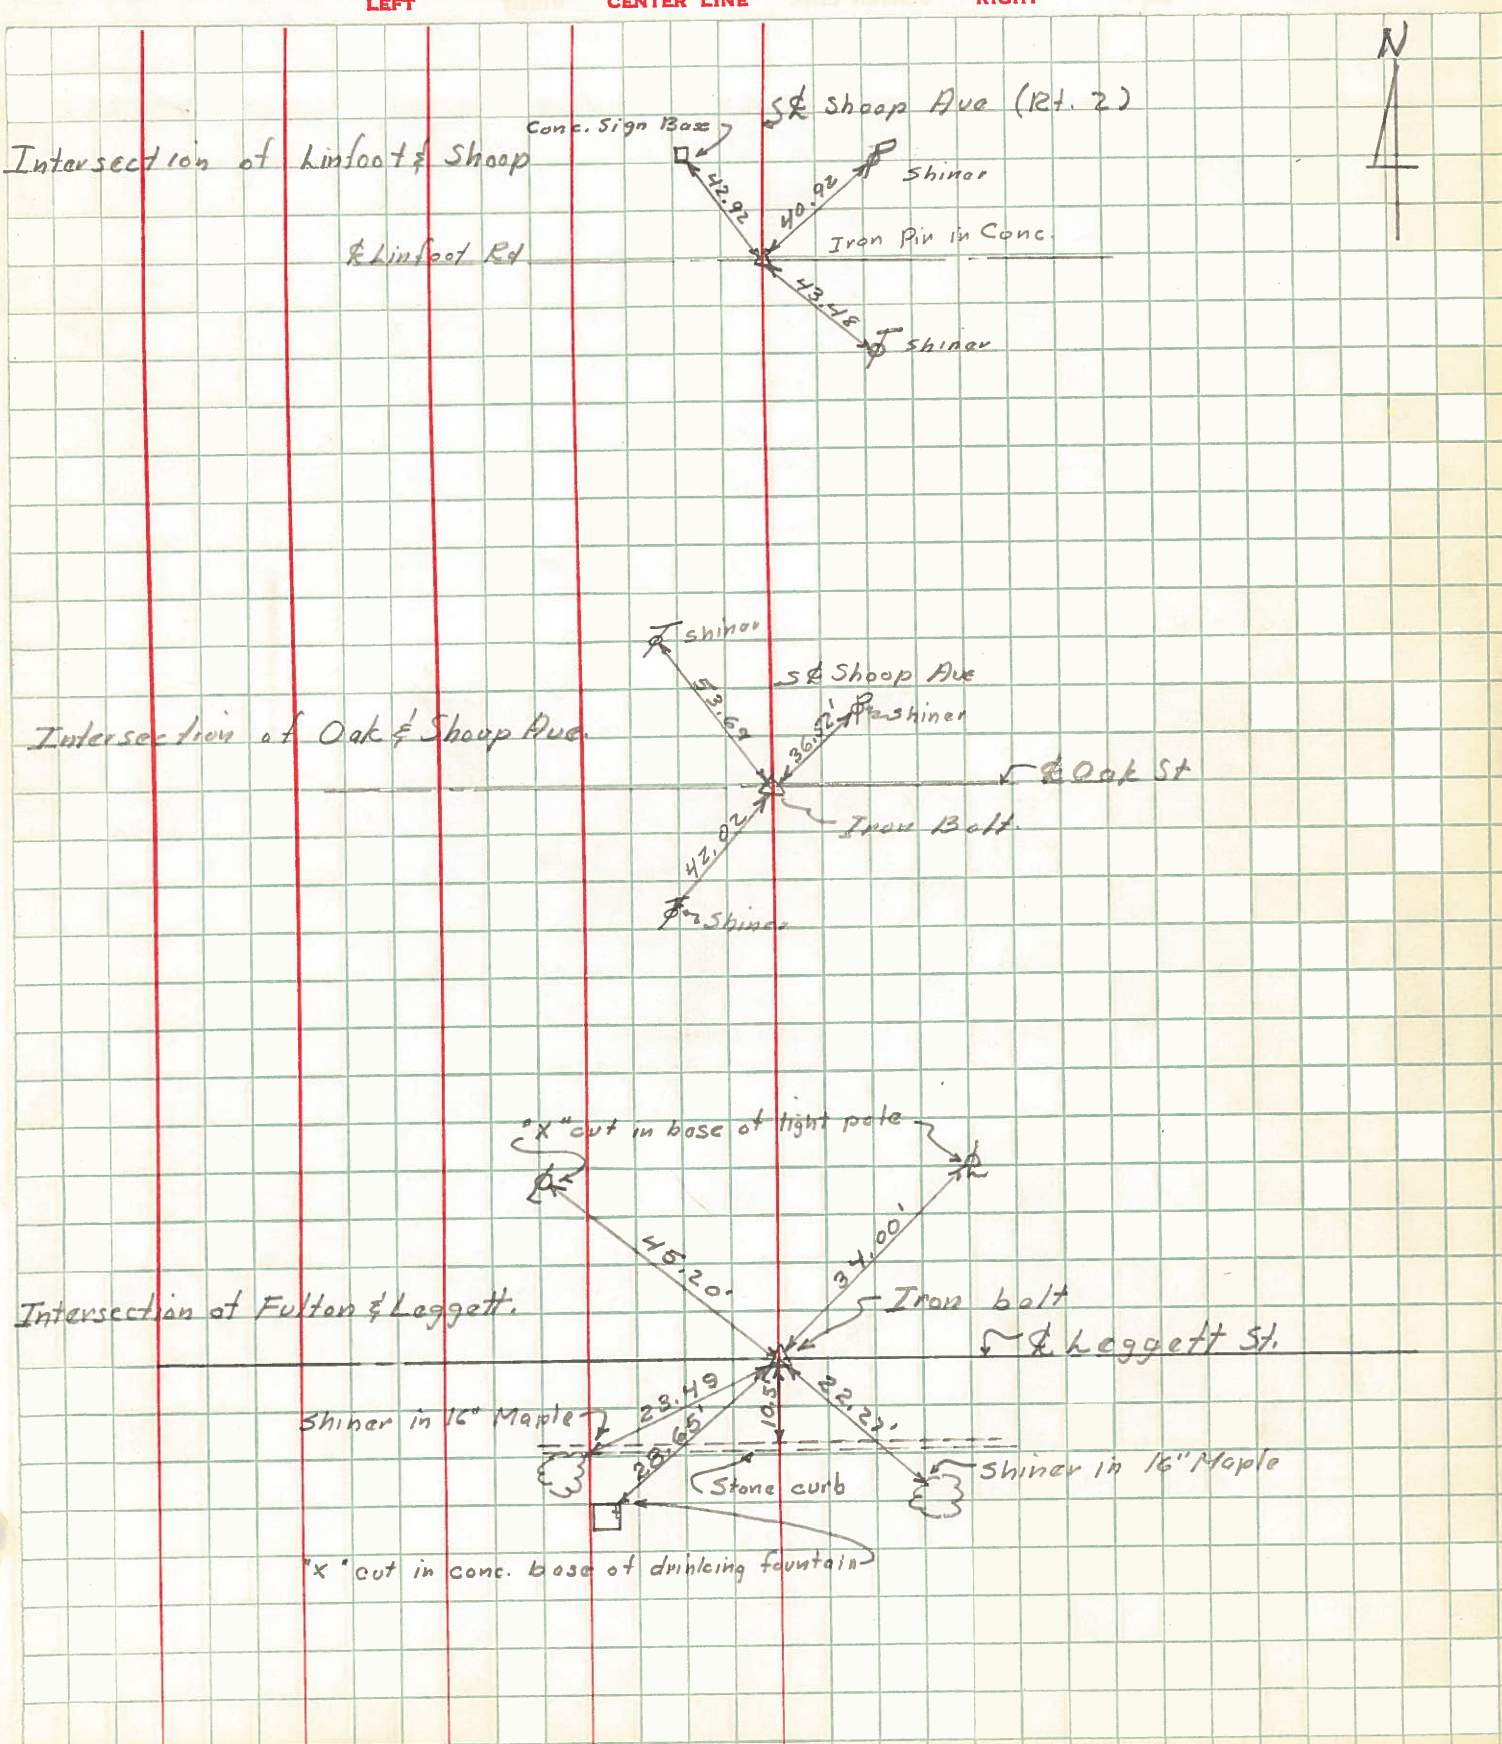 LEFT CENTER LINE RIGHT
N
℄ Shoop Ave (Rt. 2)
Conc. Sign Base
Intersection of Linfoot & Shoop
Shiner
42.92
40.92
Iron Pin in Conc.
℄ Linfoot Rd
43.48
Shiner
Shiner
℄ Shoop Ave
53.69
36.52'
Shiner
Intersection of Oak & Shoop Ave.
℄ Oak St
Iron Bolt.
42.02
Shiner
"X" cut in base of light pole
45.20'
34.00'
Iron bolt
Intersection of Fulton & Leggett.
℄ Leggett St.
23.49
22.27'
10.5'
Shiner in 16" Maple
28.65'
Shiner in 16" Maple
Stone curb
"X" cut in conc. base of drinking fountain